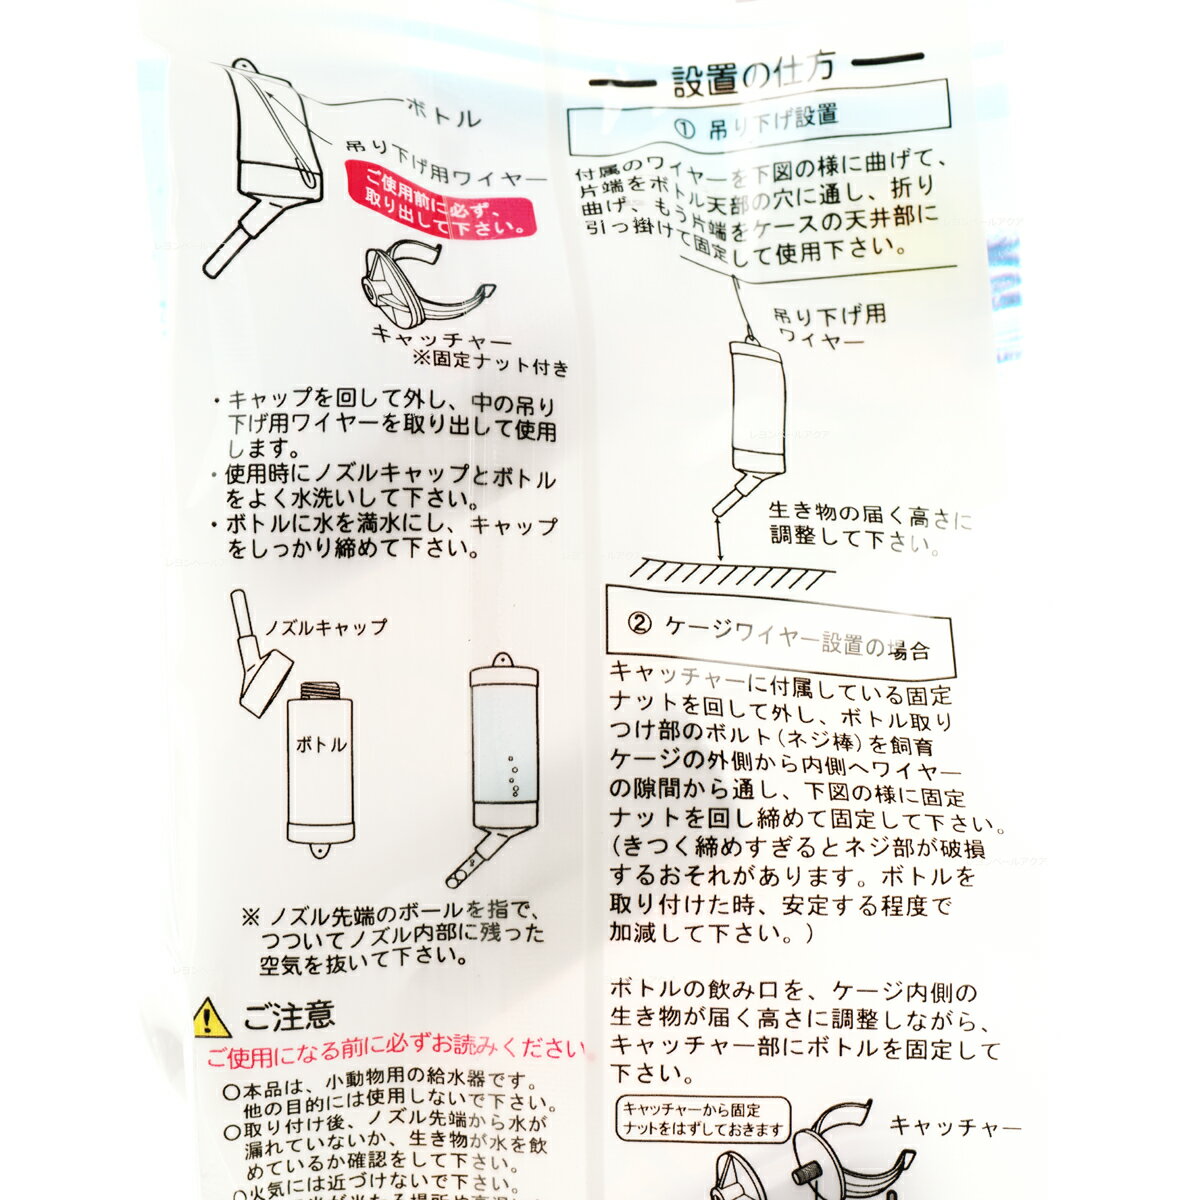 ボトル
吊り下げ用ワイヤー
ご使用前に必ず、
取り出して下さい。
キャッチャー
※固定ナット付き
・キャップを回して外し、中の吊り
下げ用ワイヤーを取り出して使用
します。
・使用時にノズルキャップとボトル
をよく水洗いして下さい。
・ボトルに水を満水にし、キャップ
をしっかり締めて下さい。
ノズルキャップ
ボトル
※ ノズル先端のボールを指で、
つついてノズル内部に残った
空気を抜いて下さい。
ご注意
ご使用になる前に必ずお読みください。
○本品は、小動物用の給水器です。
他の目的には使用しないで下さい。
○取り付け後、ノズル先端から水が
漏れていないか、生き物が水を飲
めているか確認をして下さい。
○火気には近づけないで下さい。
設置の仕方
① 吊り下げ設置
付属のワイヤーを下図の様に曲げて、
片端をボトル天部の穴に通し、折り
曲げ、もう片端をケースの天井部に
引っ掛けて固定して使用下さい。
吊り下げ用
ワイヤー
生き物の届く高さに
調整して下さい。
② ケージワイヤー設置の場合
キャッチャーに付属している固定
ナットを回して外し、ボトル取り
つけ部のボルト(ネジ棒)を飼育
ケージの外側から内側へワイヤー
の隙間から通し、下図の様に固定
ナットを回し締めて固定して下さい。
(きつく締めすぎるとネジ部が破損
するおそれがあります。ボトルを
取り付けた時、安定する程度で
加減して下さい。)
ボトルの飲み口を、ケージ内側の
生き物が届く高さに調整しながら、
キャッチャー部にボトルを固定して
下さい。
キャッチャーから固定
ナットをはずしておきます
キャッチャー
レヨンベールアクア
レヨンベールアクア
レヨンベールアクア
レヨンベールアクア
レヨンベールアクア
レヨンベールアクア